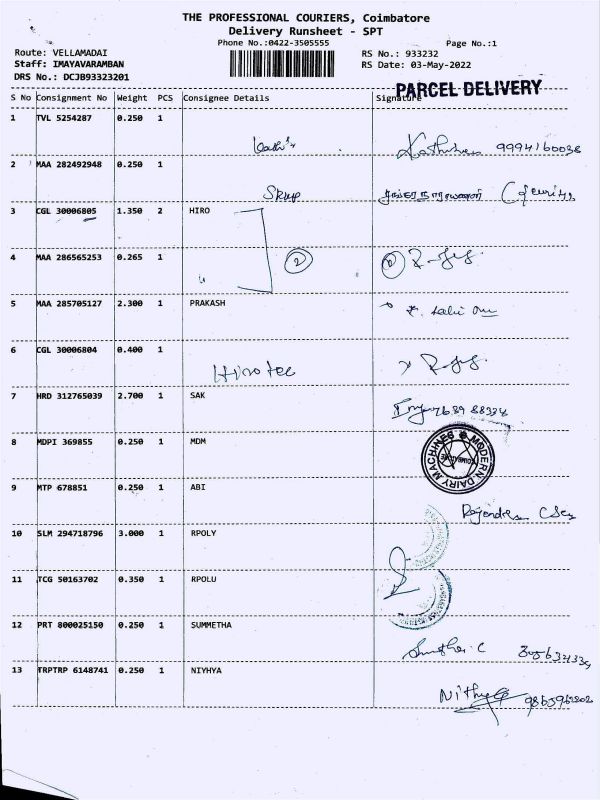 THE PROFESSIONAL COURIERS, Coimbatore
Delivery Runsheet - SPT
Phone No.:0422-3505555
Page No.:1
Route: VELLAMADAI
RS No.: 933232
Staff: IMAYAVARAMBAN
RS Date: 03-May-2022
DRS No.: DCJB93323201
PARCEL DELIVERY
S No Consignment No Weight PCS Consignee Details Signature
1 TVL 5254287 0.250 1
9994160038
2 MAA 282492948 0.250 1
3 CGL 30006805 1.350 2 HIRO
4 MAA 286565253 0.265 1
2
5 MAA 285705127 2.300 1 PRAKASH
6 CGL 30006804 0.400 1
Hirotec
7 HRD 312765039 2.700 1 SAK
8 MDPI 369855 0.250 1 MDM
MODERN DAIRY MACHINES
COIMBATORE
9 MTP 678851 0.250 1 ABI
10 SLM 294718796 3.000 1 RPOLY
11 TCG 50163702 0.350 1 RPOLU
12 PRT 800025150 0.250 1 SUMMETHA
13 TRPTRP 6148741 0.250 1 NIYHYA
Nithya